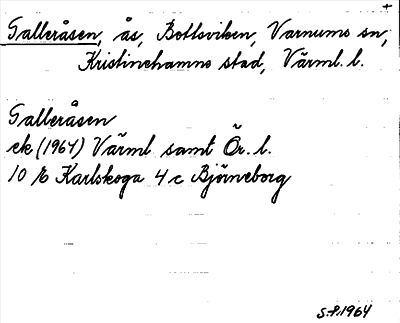 +
Galleråsen, ås, Bottsviken, Varnums sn,
Kristinehamns stad, Värml. l.
Galleråsen
ek (1964) Värml samt Ör. l.
10 E Karlskoga 4 c Björneborg
S.P. 1964